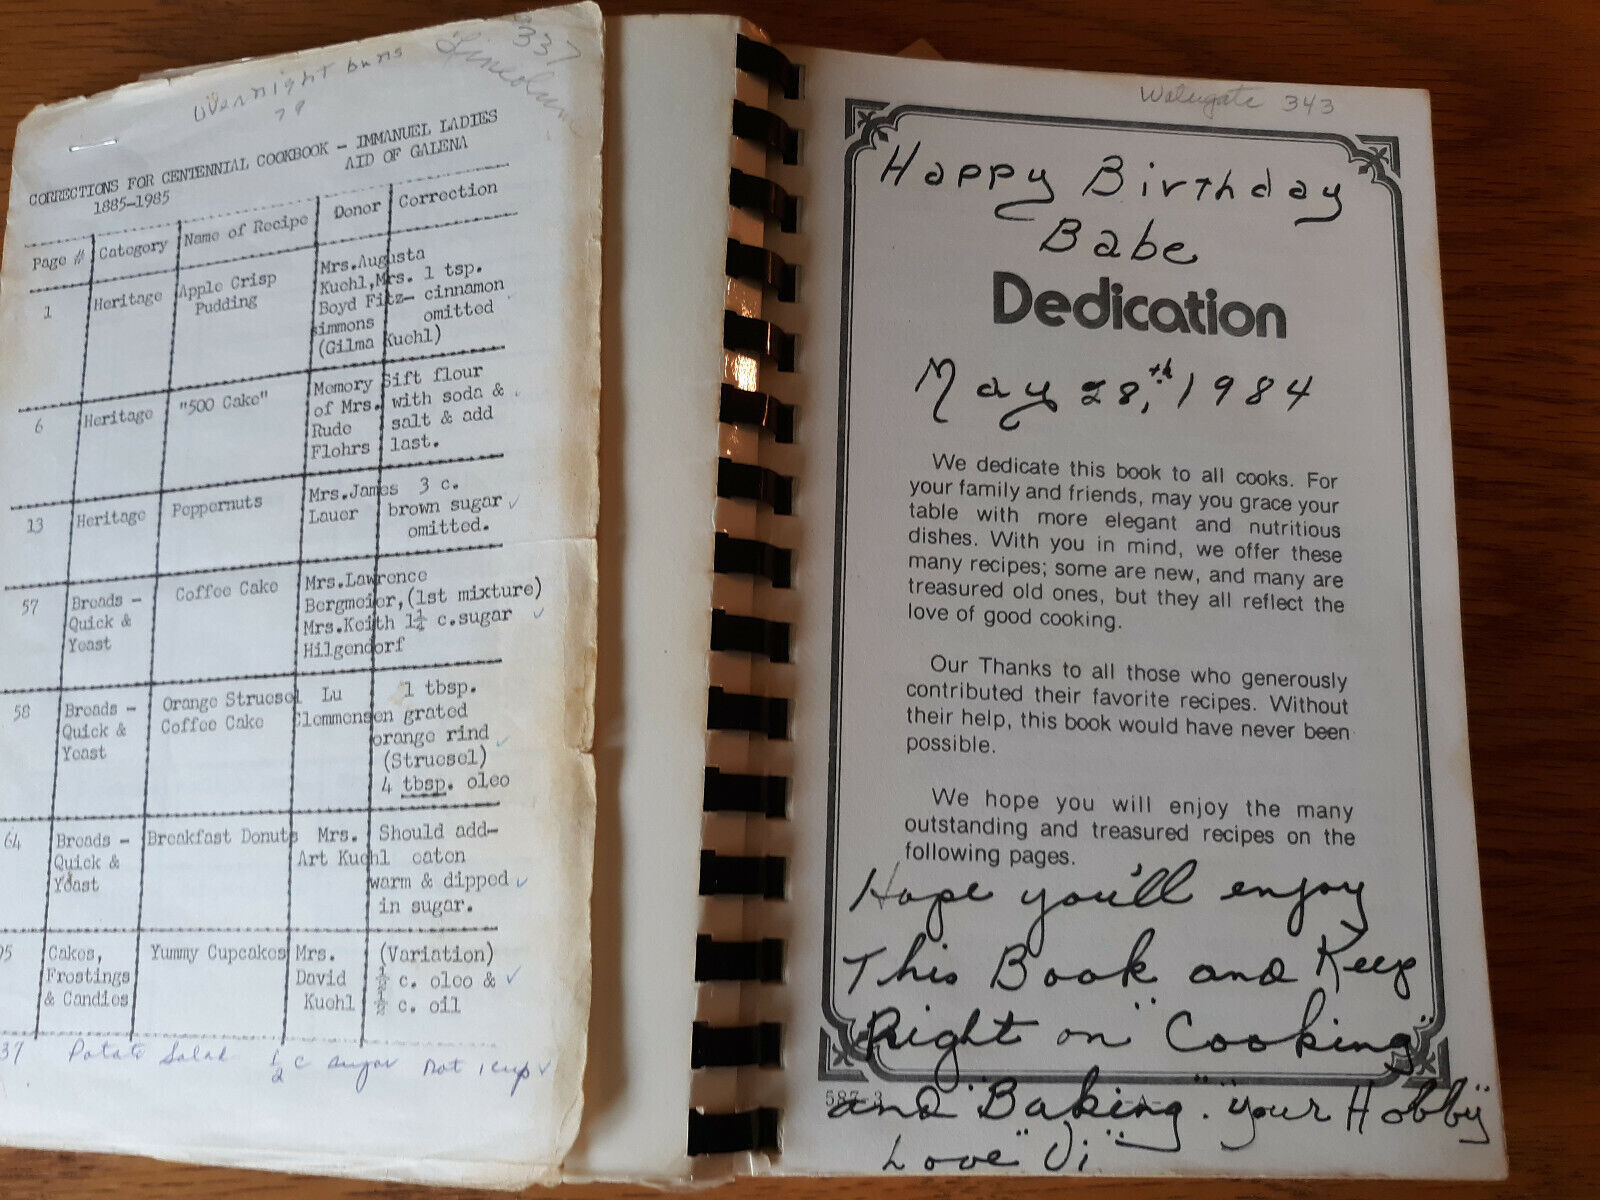 337
Lincoln
Overnight buns
79
CORRECTIONS FOR CENTENNIAL COOKBOOK - IMMANUEL LADIES
1885-1985 AID OF GALENA
Page # Category Name of Recipe Donor Correction
1 Heritage Apple Crisp Pudding Mrs.Augusta Kuehl,Mrs. Boyd Fitz-simmons (Gilma Kuehl) 1 tsp. cinnamon omitted
6 Heritage "500 Cake" Memory of Mrs. Rude Flohrs Sift flour with soda & salt & add last.
13 Heritage Peppernuts Mrs.James Lauer 3 c. brown sugar omitted.
57 Breads - Quick & Yeast Coffee Cake Mrs.Lawrence Bergmeier, Mrs.Keith Hilgendorf (1st mixture) 1¼ c.sugar
58 Breads - Quick & Yeast Orange Struesel Coffee Cake Lu Clemmensen 1 tbsp. grated orange rind (Struesel) 4 tbsp. oleo
64 Breads - Quick & Yeast Breakfast Donuts Mrs. Art Kuehl Should add- eaten warm & dipped in sugar.
95 Cakes, Frostings & Candies Yummy Cupcakes Mrs. David Kuehl (Variation) ½ c. oleo & ½ c. oil
37 Potato Salad ½ c sugar not 1 cup
343
Happy Birthday
Babe
Dedication
May 28,th 1984
We dedicate this book to all cooks. For
your family and friends, may you grace your
table with more elegant and nutritious
dishes. With you in mind, we offer these
many recipes; some are new, and many are
treasured old ones, but they all reflect the
love of good cooking.
Our Thanks to all those who generously
contributed their favorite recipes. Without
their help, this book would have never been
possible.
We hope you will enjoy the many
outstanding and treasured recipes on the
following pages.
Hope you'll enjoy
This Book and Keep
Right on "Cooking"
and "Baking". "your Hobby"
Love "Vi"